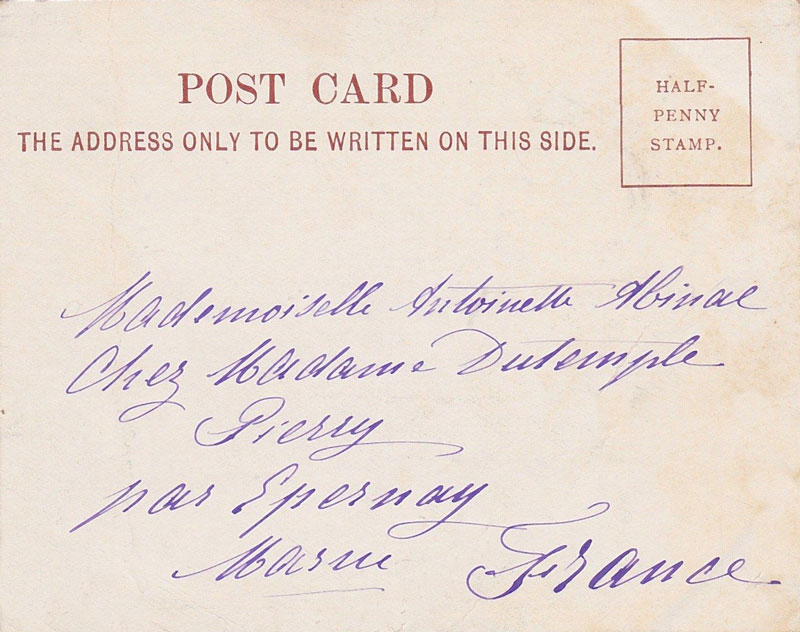 POST CARD
THE ADDRESS ONLY TO BE WRITTEN ON THIS SIDE.
HALF-
PENNY
STAMP.
Mademoiselle Antoinette Abinal
Chez Madame Dutemple
Pierry
par Epernay
Marne France